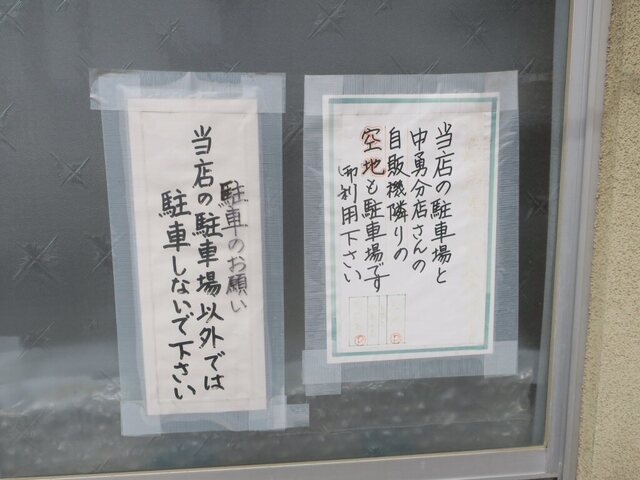 当店の駐車場と
中勇分店さんの
自販機隣りの
空地も駐車場です
御利用下さい
駐車のお願い
当店の駐車場以外では
駐車しないで下さい